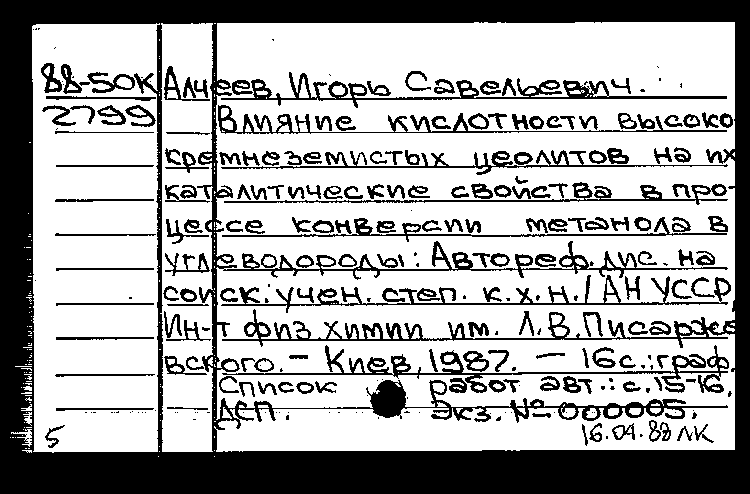 88-50К Алчеев, Игорь Савельевич.
2799 Влияние кислотности высоко-
кремнеземистых цеолитов на их
каталитические свойства в про-
цессе конверсии метанола в
углеводороды: Автореф. дис. на
соиск. учен. степ. к.х.н. / АН УССР,
Ин-т физ. химии им. Л.В. Писарже
вского. – Киев, 1987. – 16 с.: граф.
Список работ авт.: с. 15-16.
ДСП. Экз. № 000005.
5 16.04.88 ЛК